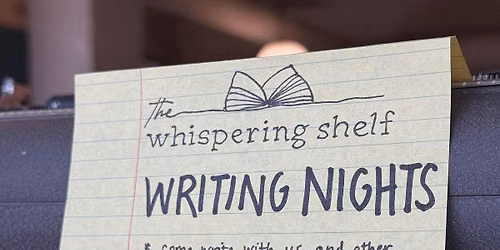 the
whispering shelf
WRITING NIGHTS
come write with us and other